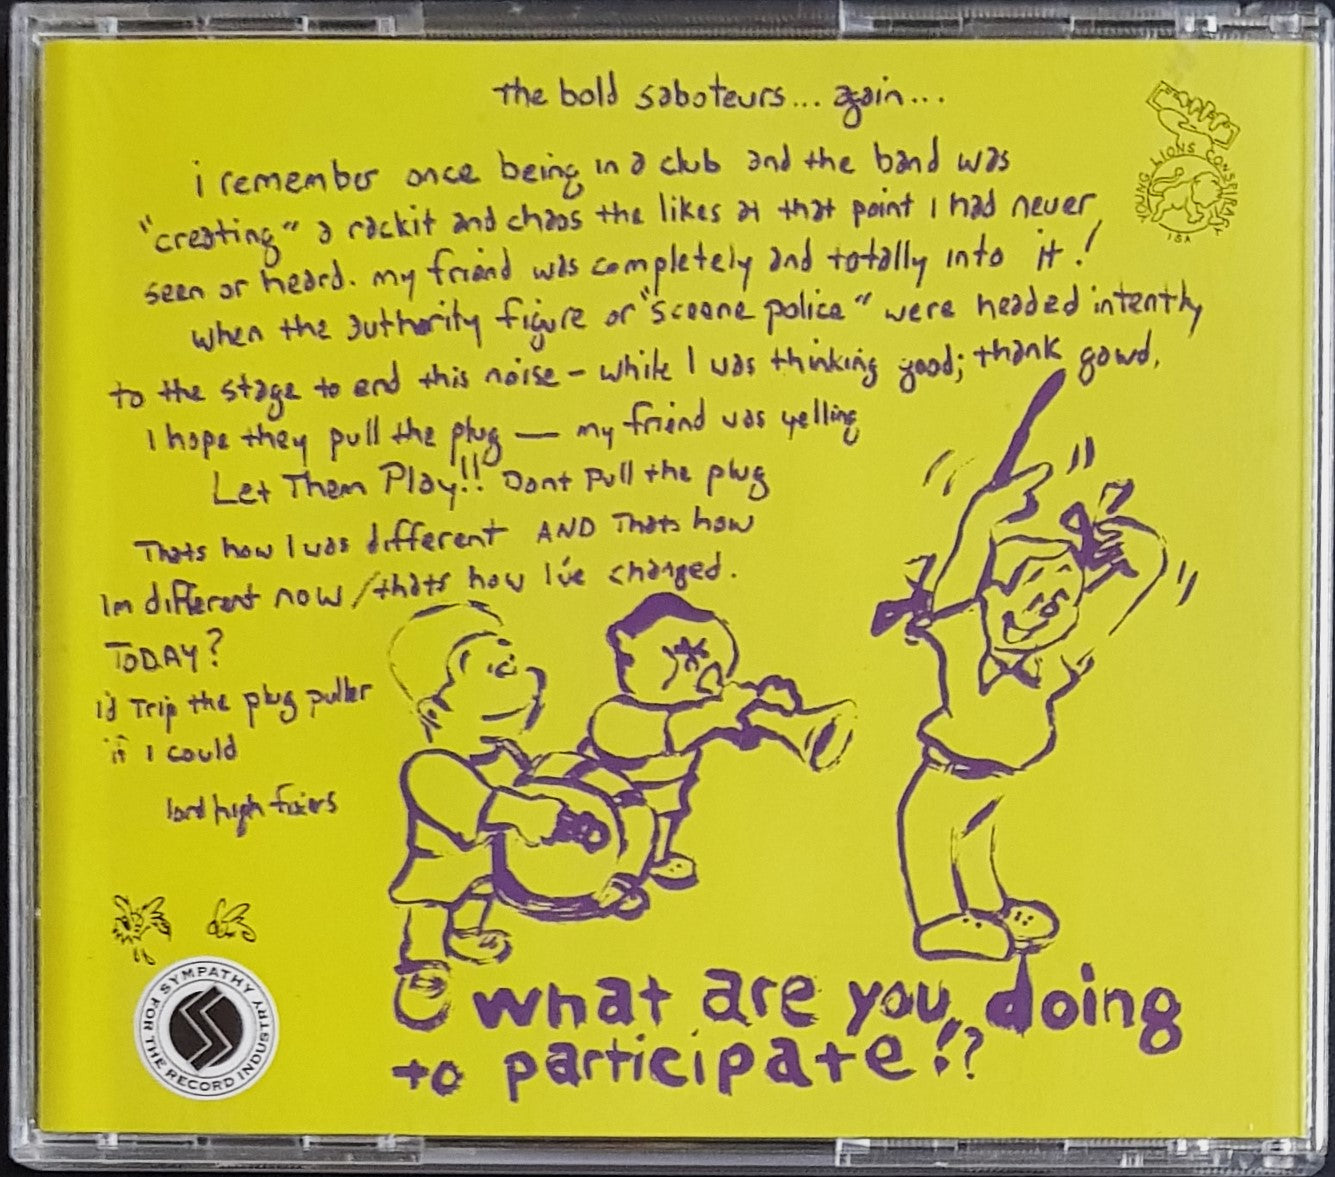 the bold saboteurs... again...
i remember once being in a club and the band was
"creating" a rackit and chaos the likes at that point I had never
seen or heard. my friend was completely and totally into it!
when the authority figure or "sceene police" were headed intently
to the stage to end this noise - while I was thinking good; thank gawd,
I hope they pull the plug — my friend was yelling
Let Them Play!! Dont pull the plug
Thats how I was different AND Thats how
Im different now / thats how I've changed.
TODAY?
i'd Trip the plug puller
if I could
lord high fixers
YOUNG LIONS CONSPIRACY
USA
SYMPATHY FOR THE RECORD INDUSTRY
what are you doing
to participate!?